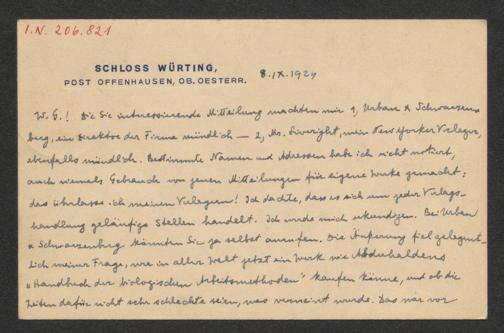 I.N. 206.821
SCHLOSS WÜRTING,
POST OFFENHAUSEN, OB. OESTERR.
8.IX.1924
W. G.! Die Sie interessierende Mitteilung machten mir 1, Urban & Schwarzen-
berg, ein Direktor der Firma mündlich — 2, Mr. Liveright, mein New Yorker Verleger,
ebenfalls mündlich. Bestimmte Namen und Adressen habe ich nicht notiert,
auch niemals Gebrauch von jenen Mitteilungen für eigene Werke gemacht:
das überlasse ich meinen Verlegern! Ich dachte, dass es sich um jeder Verlags-
handlung geläufige Stellen handelt. Ich werde mich erkundigen. Bei Urban
& Schwarzenberg könnten Sie ja selbst anrufen. Die Äußerung fiel gelegent-
lich meiner Frage, wie in aller Welt jetzt ein Werk wie Abderhaldens
"Handbuch der biologischen Arbeitsmethoden" kaufen könne, und ob die
Zeiten dafür nicht sehr schlechte seien, was verneint wurde. Das war vor